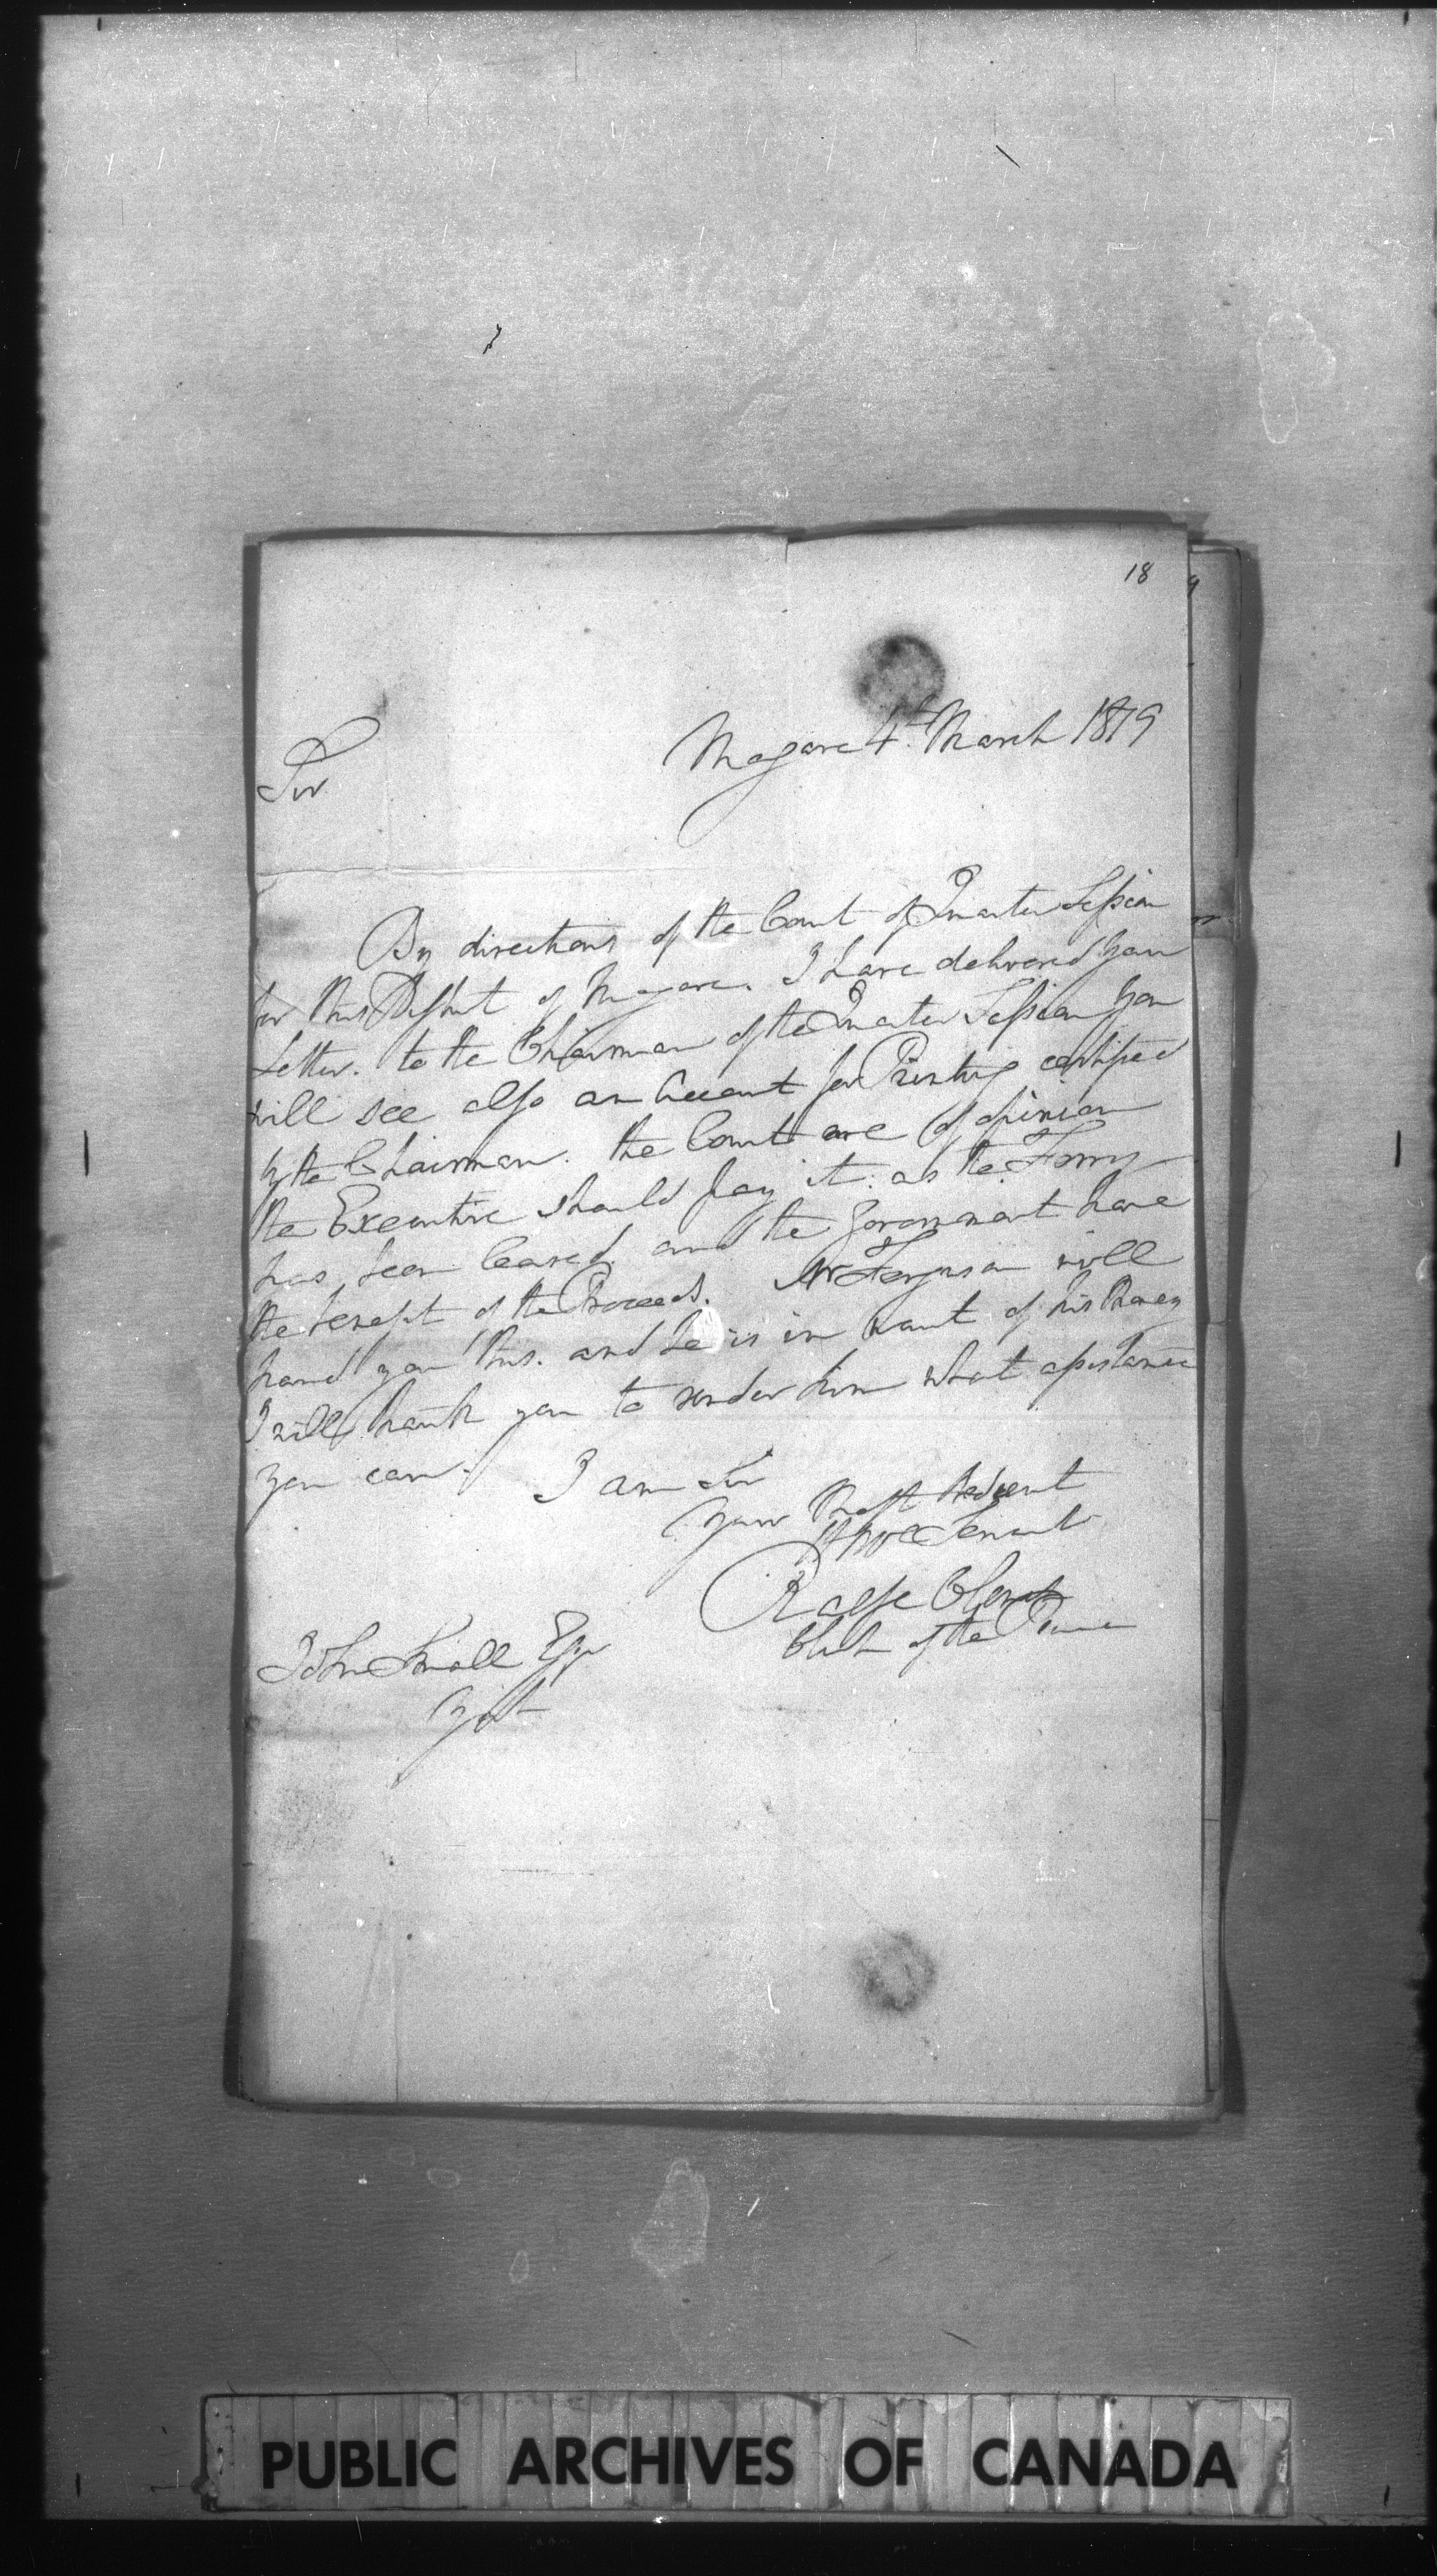 18
Niagara 4th March 1819
Sir
By directions of the Court of Quarter Session
for this District of Niagara. I have delivered your
Letter. to the Chairman of the Quarter Session you
will see also an Account for Printing certified
by the Chairman. the Court are of opinion
the Executive should pay it. as the Ferry
has been leased. and the Government have
the benefit of the Proceeds. Mr Ferguson will
hand you this. and he is in want of his Money
I will thank you to render him what assistance
you can. I am Sir
Your Most Obedient
Servant
Ralfe Clench
Clerk of the Peace
John Small Esqr
York
PUBLIC ARCHIVES OF CANADA